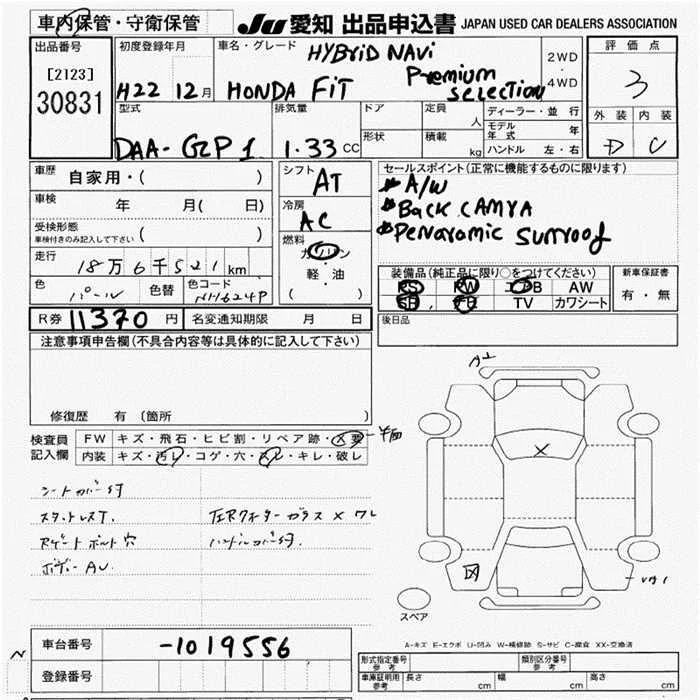 車内保管・守衛保管
JU 愛知 出品申込書 JAPAN USED CAR DEALERS ASSOCIATION
出品番号
[2123]
30831
初度登録年月
H22 12月
車名・グレード
HYBRID NAVi
HONDA FiT Premium selection
2WD
・
4WD
評価点
3
外装 内装
D C
型式
DAA-GP1
排気量
1.33 CC
ドア
定員
人
形状
積載
kg
ディーラー・並行
モデル年式 年
ハンドル 左・右
車歴
自家用・( )
車検
年 月( 日)
受検形態
車検付きのみ記入して下さい ( )
走行
18万6千521km
色
パール
色替
色コード
NH624P
シフト
AT
冷房
AC
燃料
ガソリン
・
軽・油
( )
セールスポイント(正常に機能するものに限ります)
A/W
Back CAMYA
Penaromic sunroof
装備品(純正品に限り○をつけてください)
PS PW エアB AW
SR TV カワシート
新車保証書
有・無
後日品
R券 11370 円 名変通知期限 月 日
注意事項申告欄(不具合内容等は具体的に記入して下さい)
修復歴 有 (箇所 )
検査員
記入欄
FW キズ・飛石・ヒビ割・リペア跡・X要
内装 キズ・汚レ・コゲ・穴・スレ・キレ・破レ
シートカバー付
スタットレスT.
左Rクォーターガラス X ワレ
Rゲート ボルト穴
ハンドルカバー付.
ボデー AU
A2
X
スペア
A-キズ E-エクボ U-凹み W-補修跡 S-サビ C-腐食 XX-交換済
N
車台番号
-1019556
登録番号
形式指定番号
参考
類別区分番号
参考
車庫証明用
参考
長さ cm 幅 cm 高さ cm